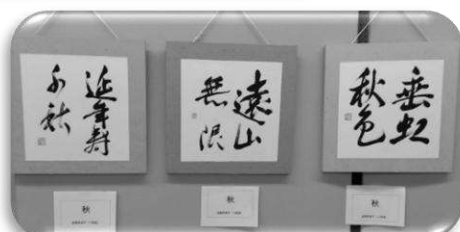 延年寿
千秋
遠山
無限
垂虹
秋色
秋
秋
秋